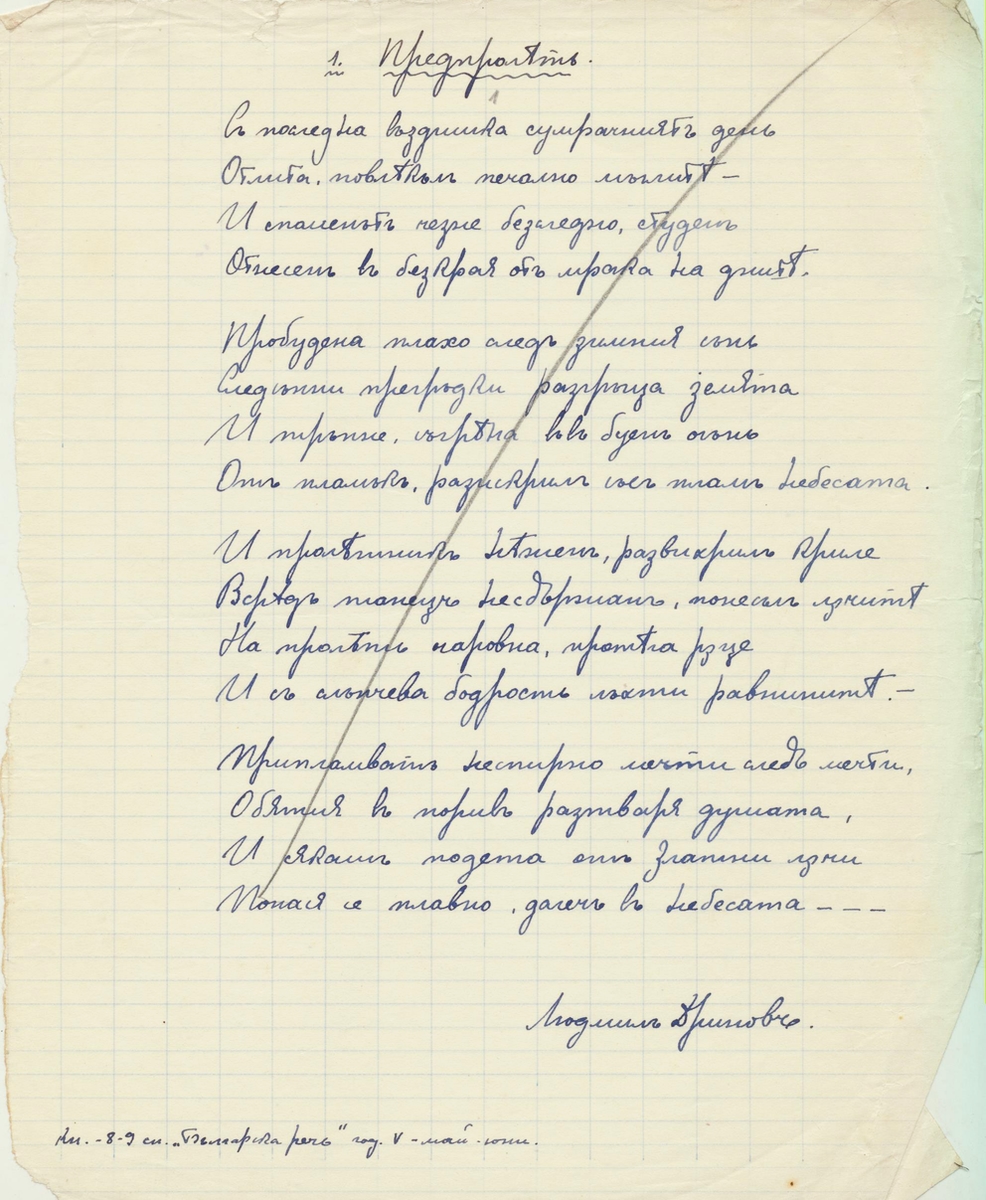 1. Предпролѣть.
1
Съ последна въздишка сумрачниятъ день
Отлита, повлѣкъл печално мъглитѣ —
И споменътъ чезне безследно, студенъ
Отнесенъ въ безкрая отъ мрака на днитѣ.
Пробудена плахо следъ зимния сънь
Следсънни прегръдки разгръща земята
И тръпне, съгрѣна въвъ буенъ огънь
Отъ пламъкъ, разискрилъ със пламъ небесата.
И пролѣтникъ нѣженъ, развихрилъ криле
Всрѣдъ танецъ несдържанъ, понесълъ лѫчитѣ
На пролѣть чаровна, протѣга рѫце
И съ слънчева бодрость лъхти равнинитѣ. —
Припламватъ неспирно мечти следъ мечти,
Обятия въ поривъ разтваря душата,
И якашъ подета отъ златни лѫчи
Понася се плавно, далечъ въ небесата – – –
Людмилъ Дриновъ.
Кн. - 8-9 сп. „Българска речь" год. V - май - юни.